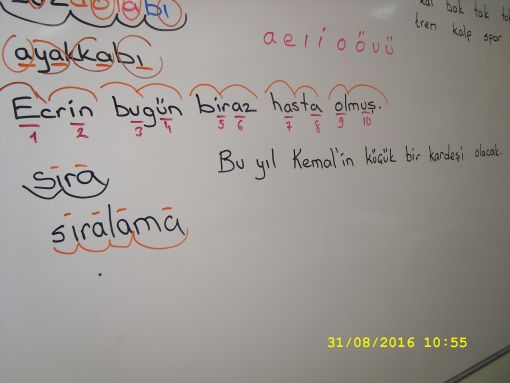 kal bak tak
tren kalp spor
a e ı i o ö u ü
ayakkabı
Ecrin bugün biraz hasta olmuş.
1 2 3 4 5 6 7 8 9 10
Bu yıl Kemal'in küçük bir kardeşi olacak.
sıra
sıralama
31/08/2016 10:55